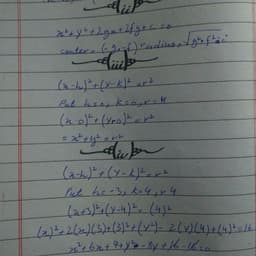 x²+y²+2gx+2fy+c=0
center=(-g,-f) radius=√g²+f²-c
iii
(x-h)²+(y-k)²=r²
Put h=0, k=0, r=4
(x-0)²+(y-0)²=r²
=x²+y²=r²
iv
(x-h)²+(y-k)²=r²
Put h=-3, k=4, r 4
(x+3)²+(y-4)²=(4)²
(x)²+2(x)(3)+(3)²+(y)²-2(y)(4)+(4)²=16
x²+6x+9+y²-8y+16-16=0